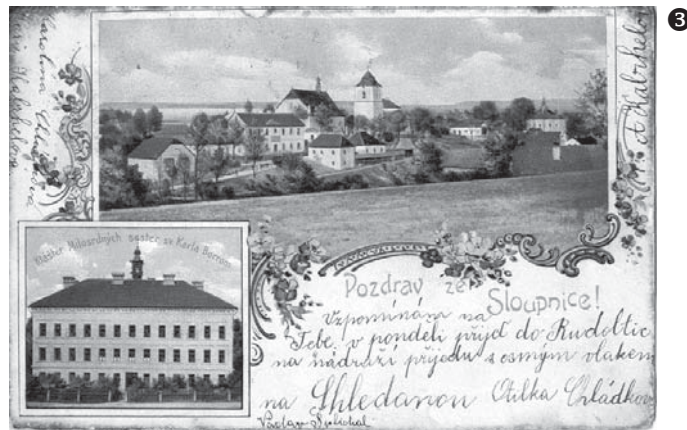 ❸
Klášter Milosrdných sester sv Karla Borrom.
Pozdrav ze
Sloupnice!
Vzpomínám na
Tebe, v pondělí přijď do Rudoltic
na nádraží přijedu s osmým vlakem
na Shledanou Otilka Chládkov
Václav
Karolina
A Kabrhelov
Kabrhelova